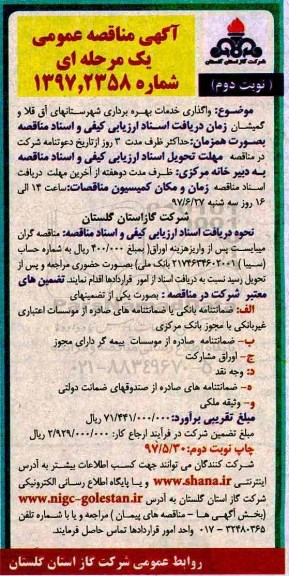 شرکت گاز استان گلستان
آگهی مناقصه عمومی
یک مرحله ای
شماره ۱۳۹۷,۲۳۵۸
( نوبت دوم )
موضوع: واگذاری خدمات بهره برداری شهرستانهای آق قلا و
گمیشان زمان دریافت اسناد ارزیابی کیفی و اسناد مناقصه
بصورت همزمان:حداکثر ظرف مدت ۳ روز ازتاریخ دعوتنامه شرکت
در مناقصه مهلت تحویل اسناد ارزیابی کیفی و اسناد مناقصه
به دبیر خانه مرکزی: ظرف مدت دوهفته از آخرین مهلت دریافت
اسناد مناقصه زمان و مکان کمیسیون مناقصات:ساعت ۱۴ الی
۱۶ روز سه شنبه ۹۷/۶/۲۷
شرکت گازاستان گلستان
نحوه دریافت اسناد ارزیابی کیفی و اسناد مناقصه: مناقصه گران
میبایست پس از واریزهزینه اوراق( بمبلغ ۴۰۰/۰۰۰ ریال به شماره حساب
(سیبا ) ۲۱۷۴۶۳۴۶۰۲۰۰۱ بانک ملی) بصورت حضوری مراجعه و پس از
تحویل رسید نسبت به دریافت اسناد از امور قراردادها اقدام نمایند. تضمین های
معتبر شرکت در مناقصه : بصورت یکی از تضمینهای
الف: ضمانتنامه بانکی یا ضمانتنامه های صادره از موسسات اعتباری
غیربانکی با مجوز بانک مرکزی
ب- ضمانتنامه صادره از موسسات بیمه گر دارای مجوز
ج- اوراق مشارکت
د: وجه نقد
ه- ضمانتنامه های صادره از صندوقهای ضمانت دولتی
و- وثیقه ملکی
مبلغ تقریبی برآورد:۷۱/۴۴۱/۰۰۰/۰۰۰ ریال
مبلغ تضمین شرکت در فرآیند ارجاع کار: ۲/۹۲۹/۰۰۰/۰۰۰ ریال
چاپ نوبت دوم:۹۷/۵/۳۰
شرکت کنندگان می توانند جهت کسب اطلاعات بیشتر به آدرس
اینترنتی www.shana.ir و یا پایگاه اطلاع رسانی الکترونیکی
شرکت گاز استان گلستان به آدرس www.nigc-golestan.ir
(بخش آگهی ها - مناقصه های پیمان ) مراجعه و یا با شماره تلفن
۳۲۴۸۰۳۶۵ - ۰۱۷ واحد امور قراردادها تماس حاصل فرمایند.
روابط عمومی شرکت گاز استان گلستان